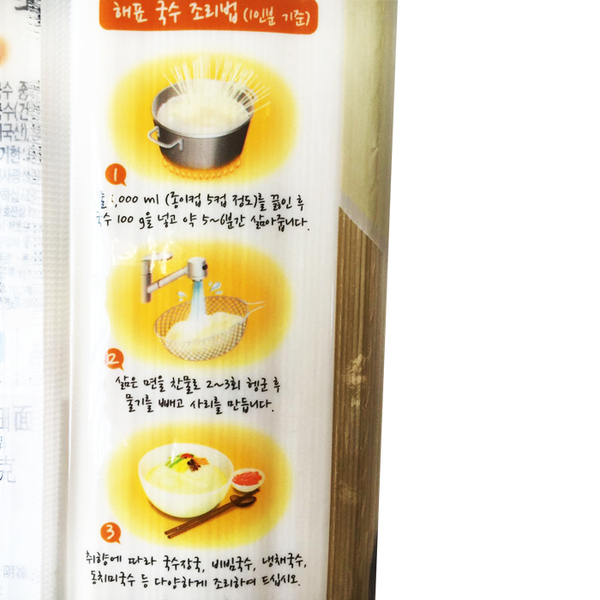 해표 국수 조리법 (1인분 기준)
1
,000 ml (종이컵 5컵 정도)를 끓인 후
국수 100 g을 넣고 약 5~6분간 삶아줍니다.
2
삶은 면을 찬물로 2~3회 헹군 후
물기를 빼고 사리를 만듭니다.
3
취향에 따라 국수장국, 비빔국수, 냉채국수,
동치미국수 등 다양하게 조리하여 드십시오.
面
克